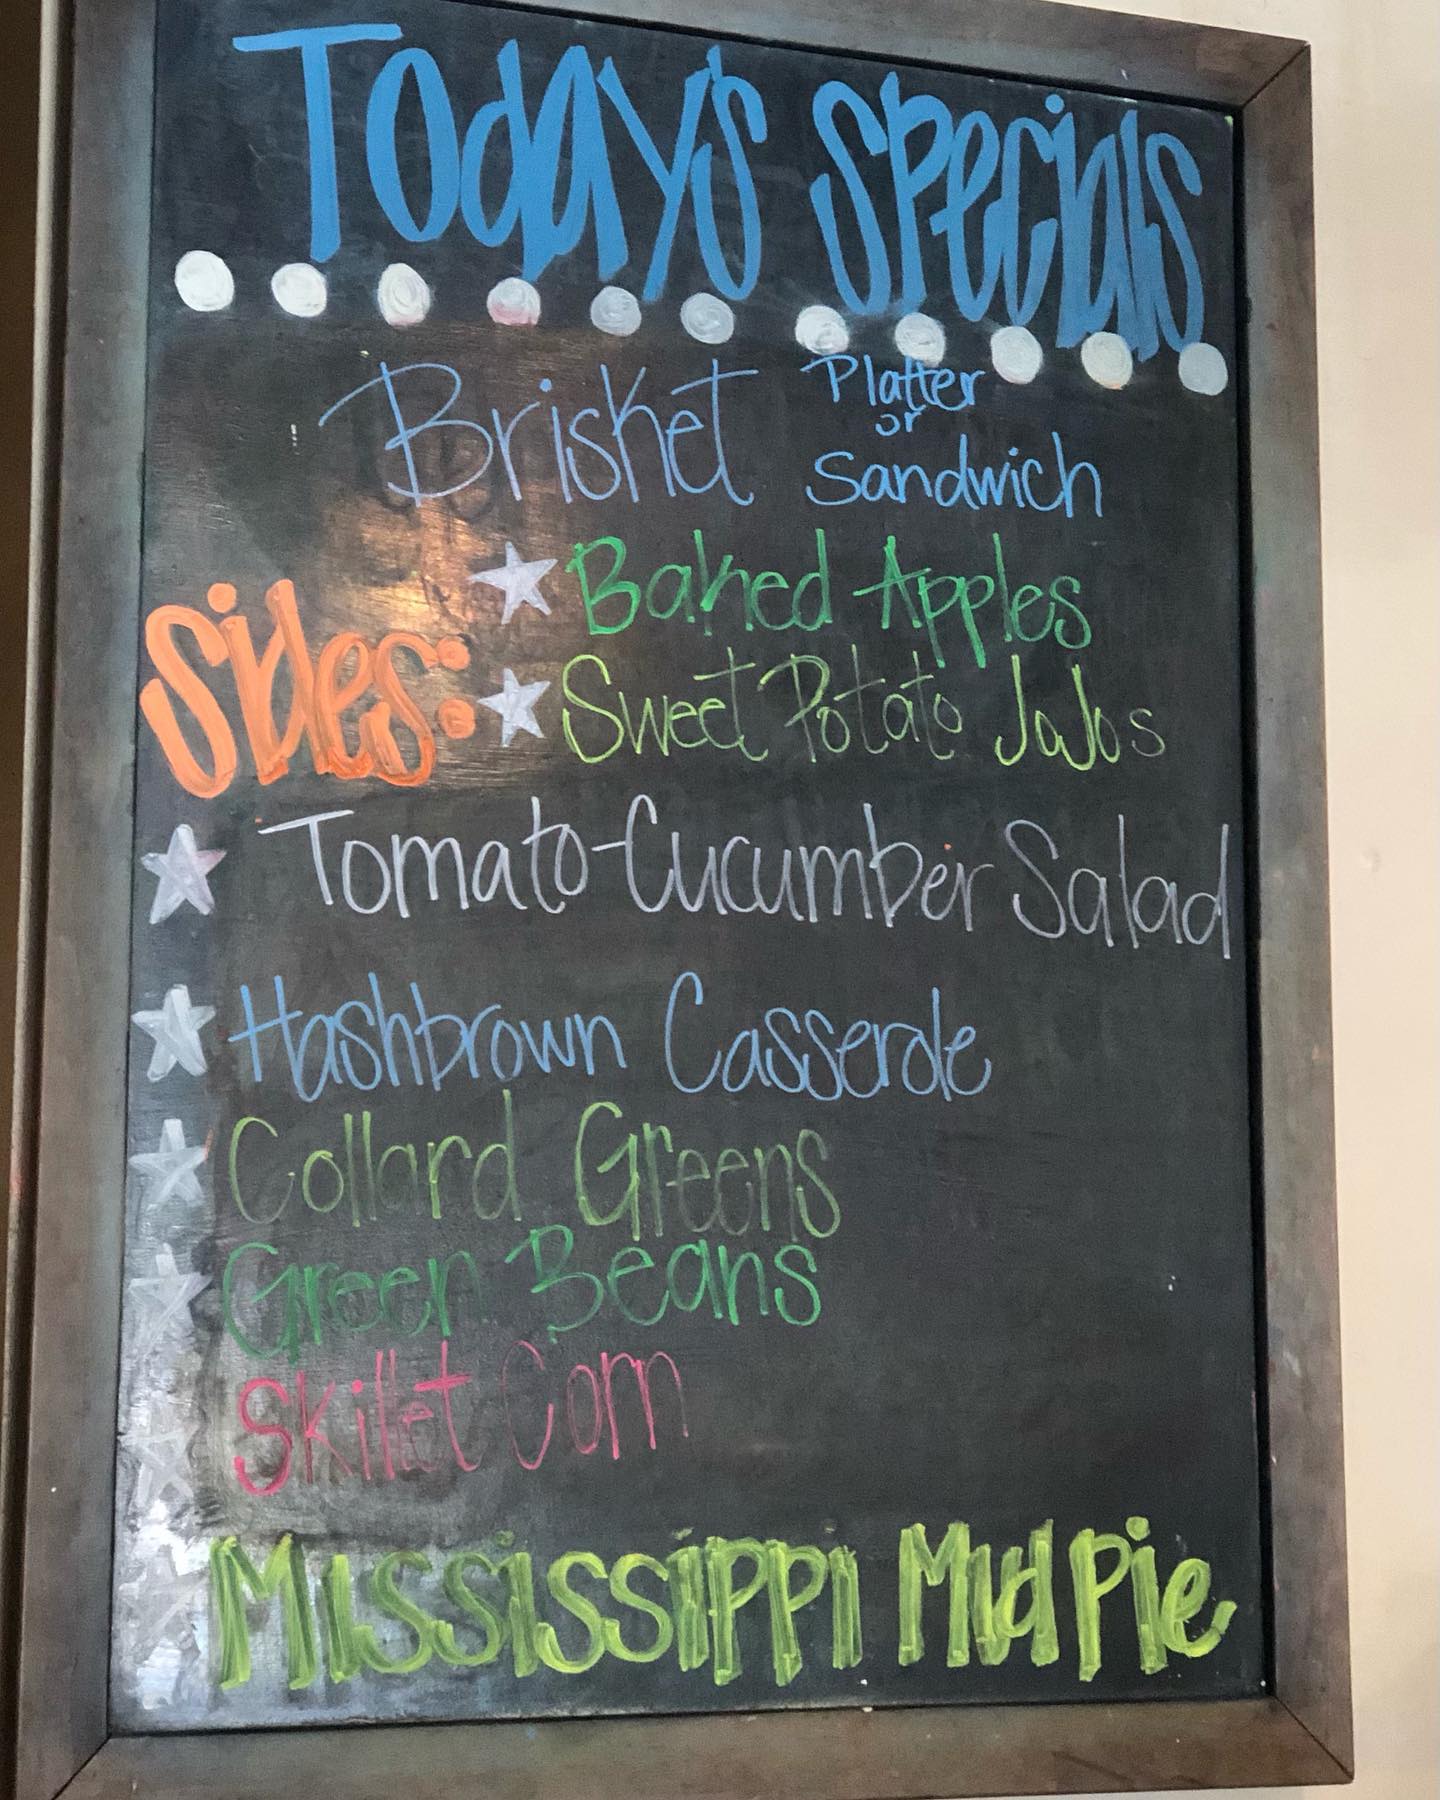 Today's Specials
Brisket Platter or Sandwich
Sides:
Baked Apples
Sweet Potato JoJos
Tomato-Cucumber Salad
Hashbrown Casserole
Collard Greens
Green Beans
Skillet Corn
Mississippi Mud Pie